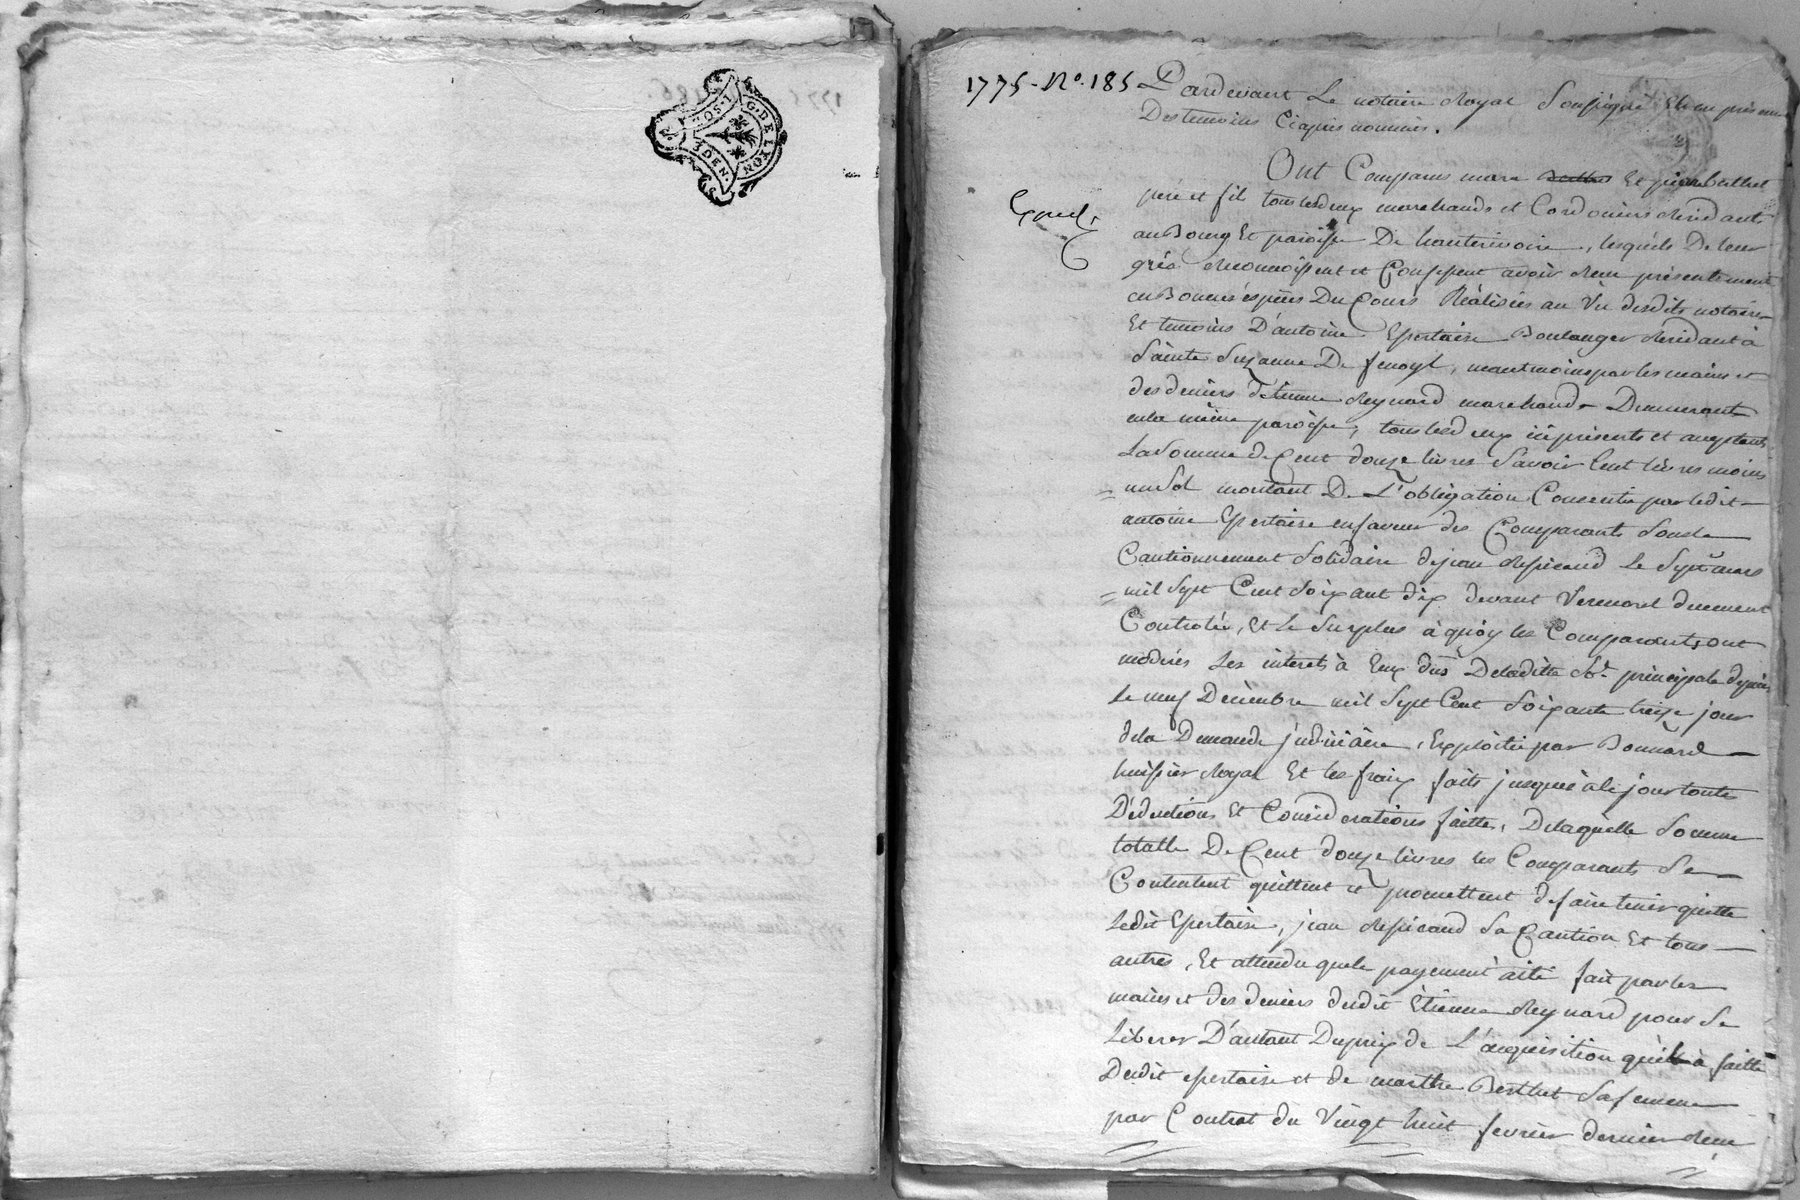 G. DE LYON
10 S. 1
3 DEN.
1775. No. 185
Pardevant Le notaire Royal Soussigné Et en présence
Des temoins Cy apres nommés.
Ont Comparus marc Berthet Et pierre Berthet
pere et fil tous les deux marchands et Cordoniers residants
au Bourg Et paroisse De hauterivoire, lesquels De leur
Exped.
gréz reconnoissent et Confessent avoir reçu présentement
en Bonnes espèces Du Cours Réalisées au Vû desdits notaire
Et temoins D'antoine Epertaise Boulanger residant à
Sainte Suzanne De fenoyl, neantmoins par les mains et
des deniers d'Etienne Reynard marchand Demeurant
en la même paroisse, tous les deux icy présents et acceptants
La Somme de Cent douze livres Savoir Cent livres moins
un Sol montant De L'obligation Consentie par ledit
antoine Epertaise en faveur des Comparants Sous le
Cautionnement Solidaire de jean Ressicaud Le Sept mars
mil Sept Cent Soixant dix devant Vermorel duement
Controlée, Et Le Surplus à quoy les Comparants ont
modérés Les interets à Eux dûs De ladite Se. principale depuis
Le neuf Décembre mil Sept Cent Soixante treize jour
de la Demande judiciaire, Exploitée par Bonnard
huissier Royal Et les fraix faits jusques à ce jour toute
Déductions Et Considerations faittes, De laquelle Somme
totalle De Cent douze livres les Comparants Se
Contentent quittent et promettent de faire tenir quitte
Ledit Epertaise, jean Ressicaud Sa Caution Et tous
autres, Et attendu que le payement a été fait par les
mains et des deniers dudit Etienne Reynard pour Se
Liberer D'autant Du prix de L'acquisition qu'il à faitte
Dudit Epertaise et de marthe Berthet Sa femme
par Contrat du Vingt huit fevrier dernier reçu